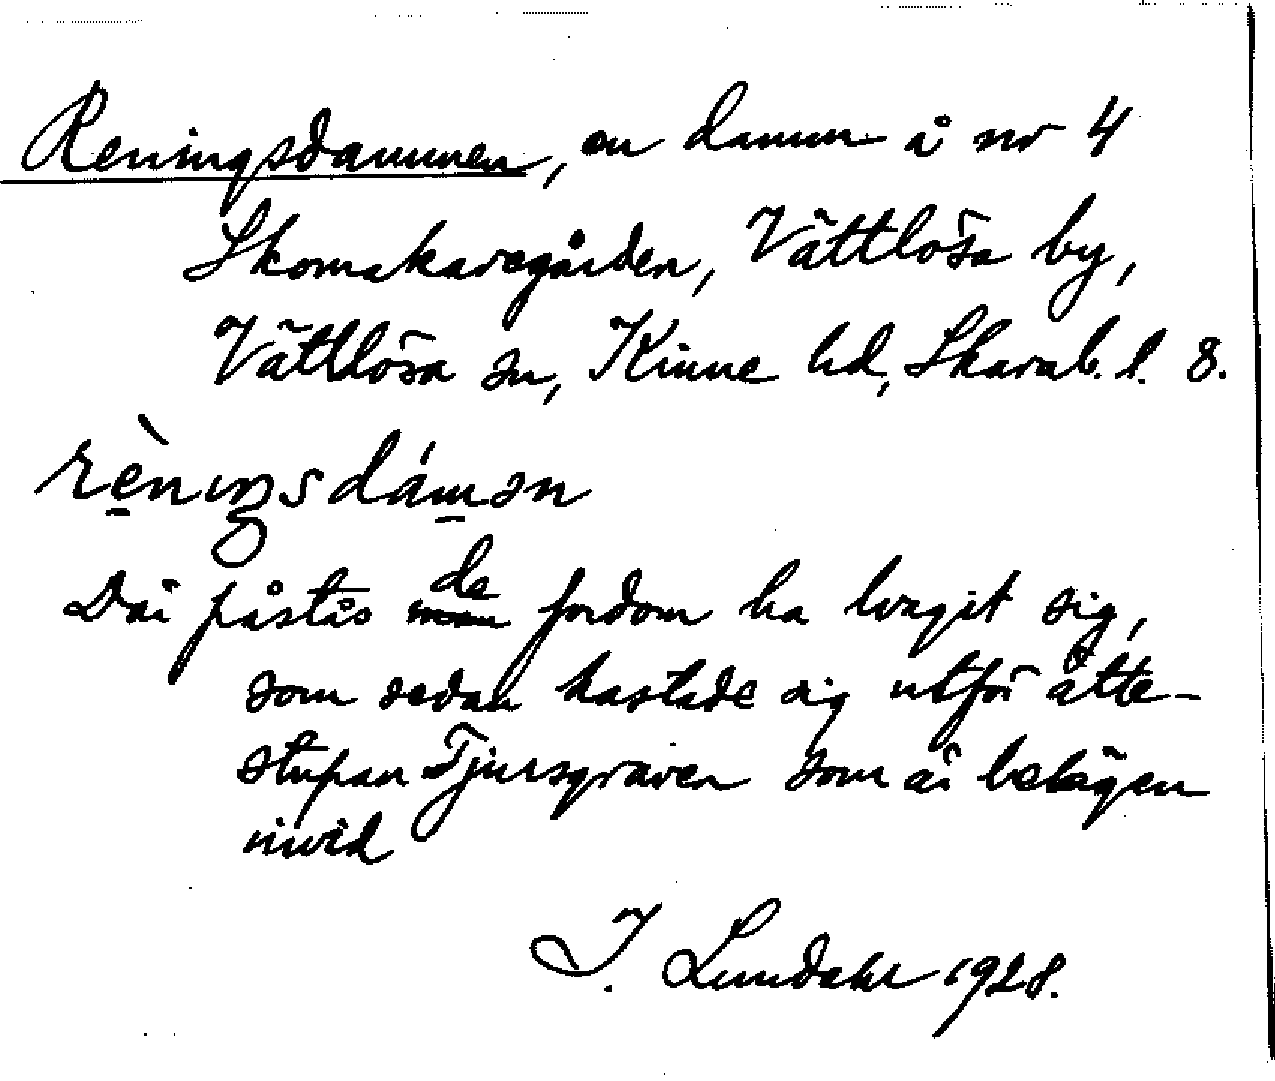 Reningsdammen, en damm å nr 4
Skomakaregården, Vättlösa by,
Vättlösa sn, Kinne hd, Skarab. l. 8.
rèni̡ŋsdámən
Där påstås de fordom ha tvagit sig,
som sedan kastade sig utför ätte-
stupan Tjursgraven som är belägen
invid
I. Lundahl 1928.